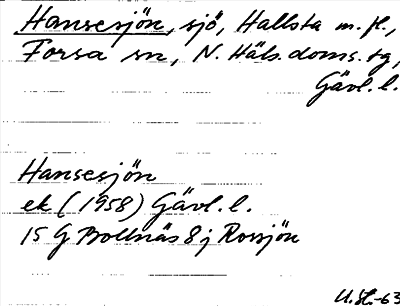 Hansesjön, sjö, Hallsta m.fl.,
Forsa sn, N. Häls. doms. tg,
Gävl. l.
Hansesjön
ek (1958) Gävl. l.
15 G Bollnäs 8 j Rossjön
U.St.-63